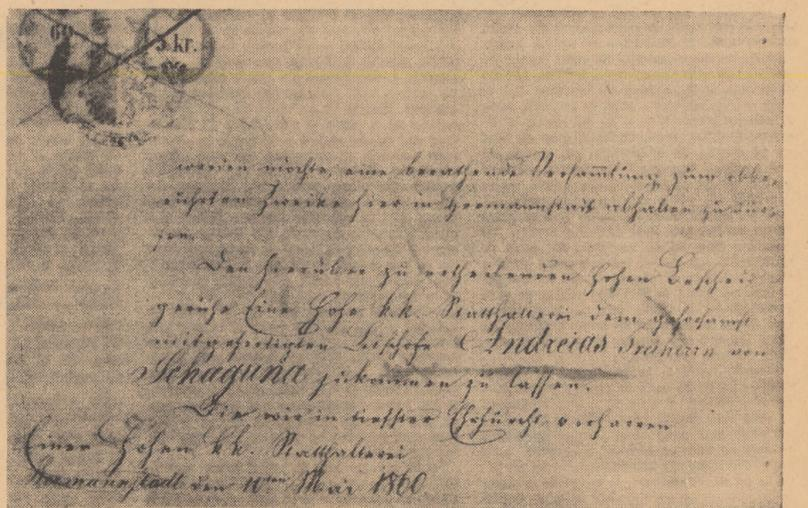 60
5 kr.
werden möchte, eine berathende Versamlung zum obbe-
rührten Zweike hier in Hermannstadt abhalten zu dür-
fen.
Den hierüber zu ertheilenden hohen Bescheid
geruhe Eine Hohe k.k. Statthalterei dem gehorsamst
mitgefertigten Bischofe Andreias Freiherrn von
Schaguna zukommen zu lassen.
Die wir in tiefster Ehrfurcht verharren
Einer Hohen k.k. Statthalterei
Hermannstadt den 10ten Mai 1860